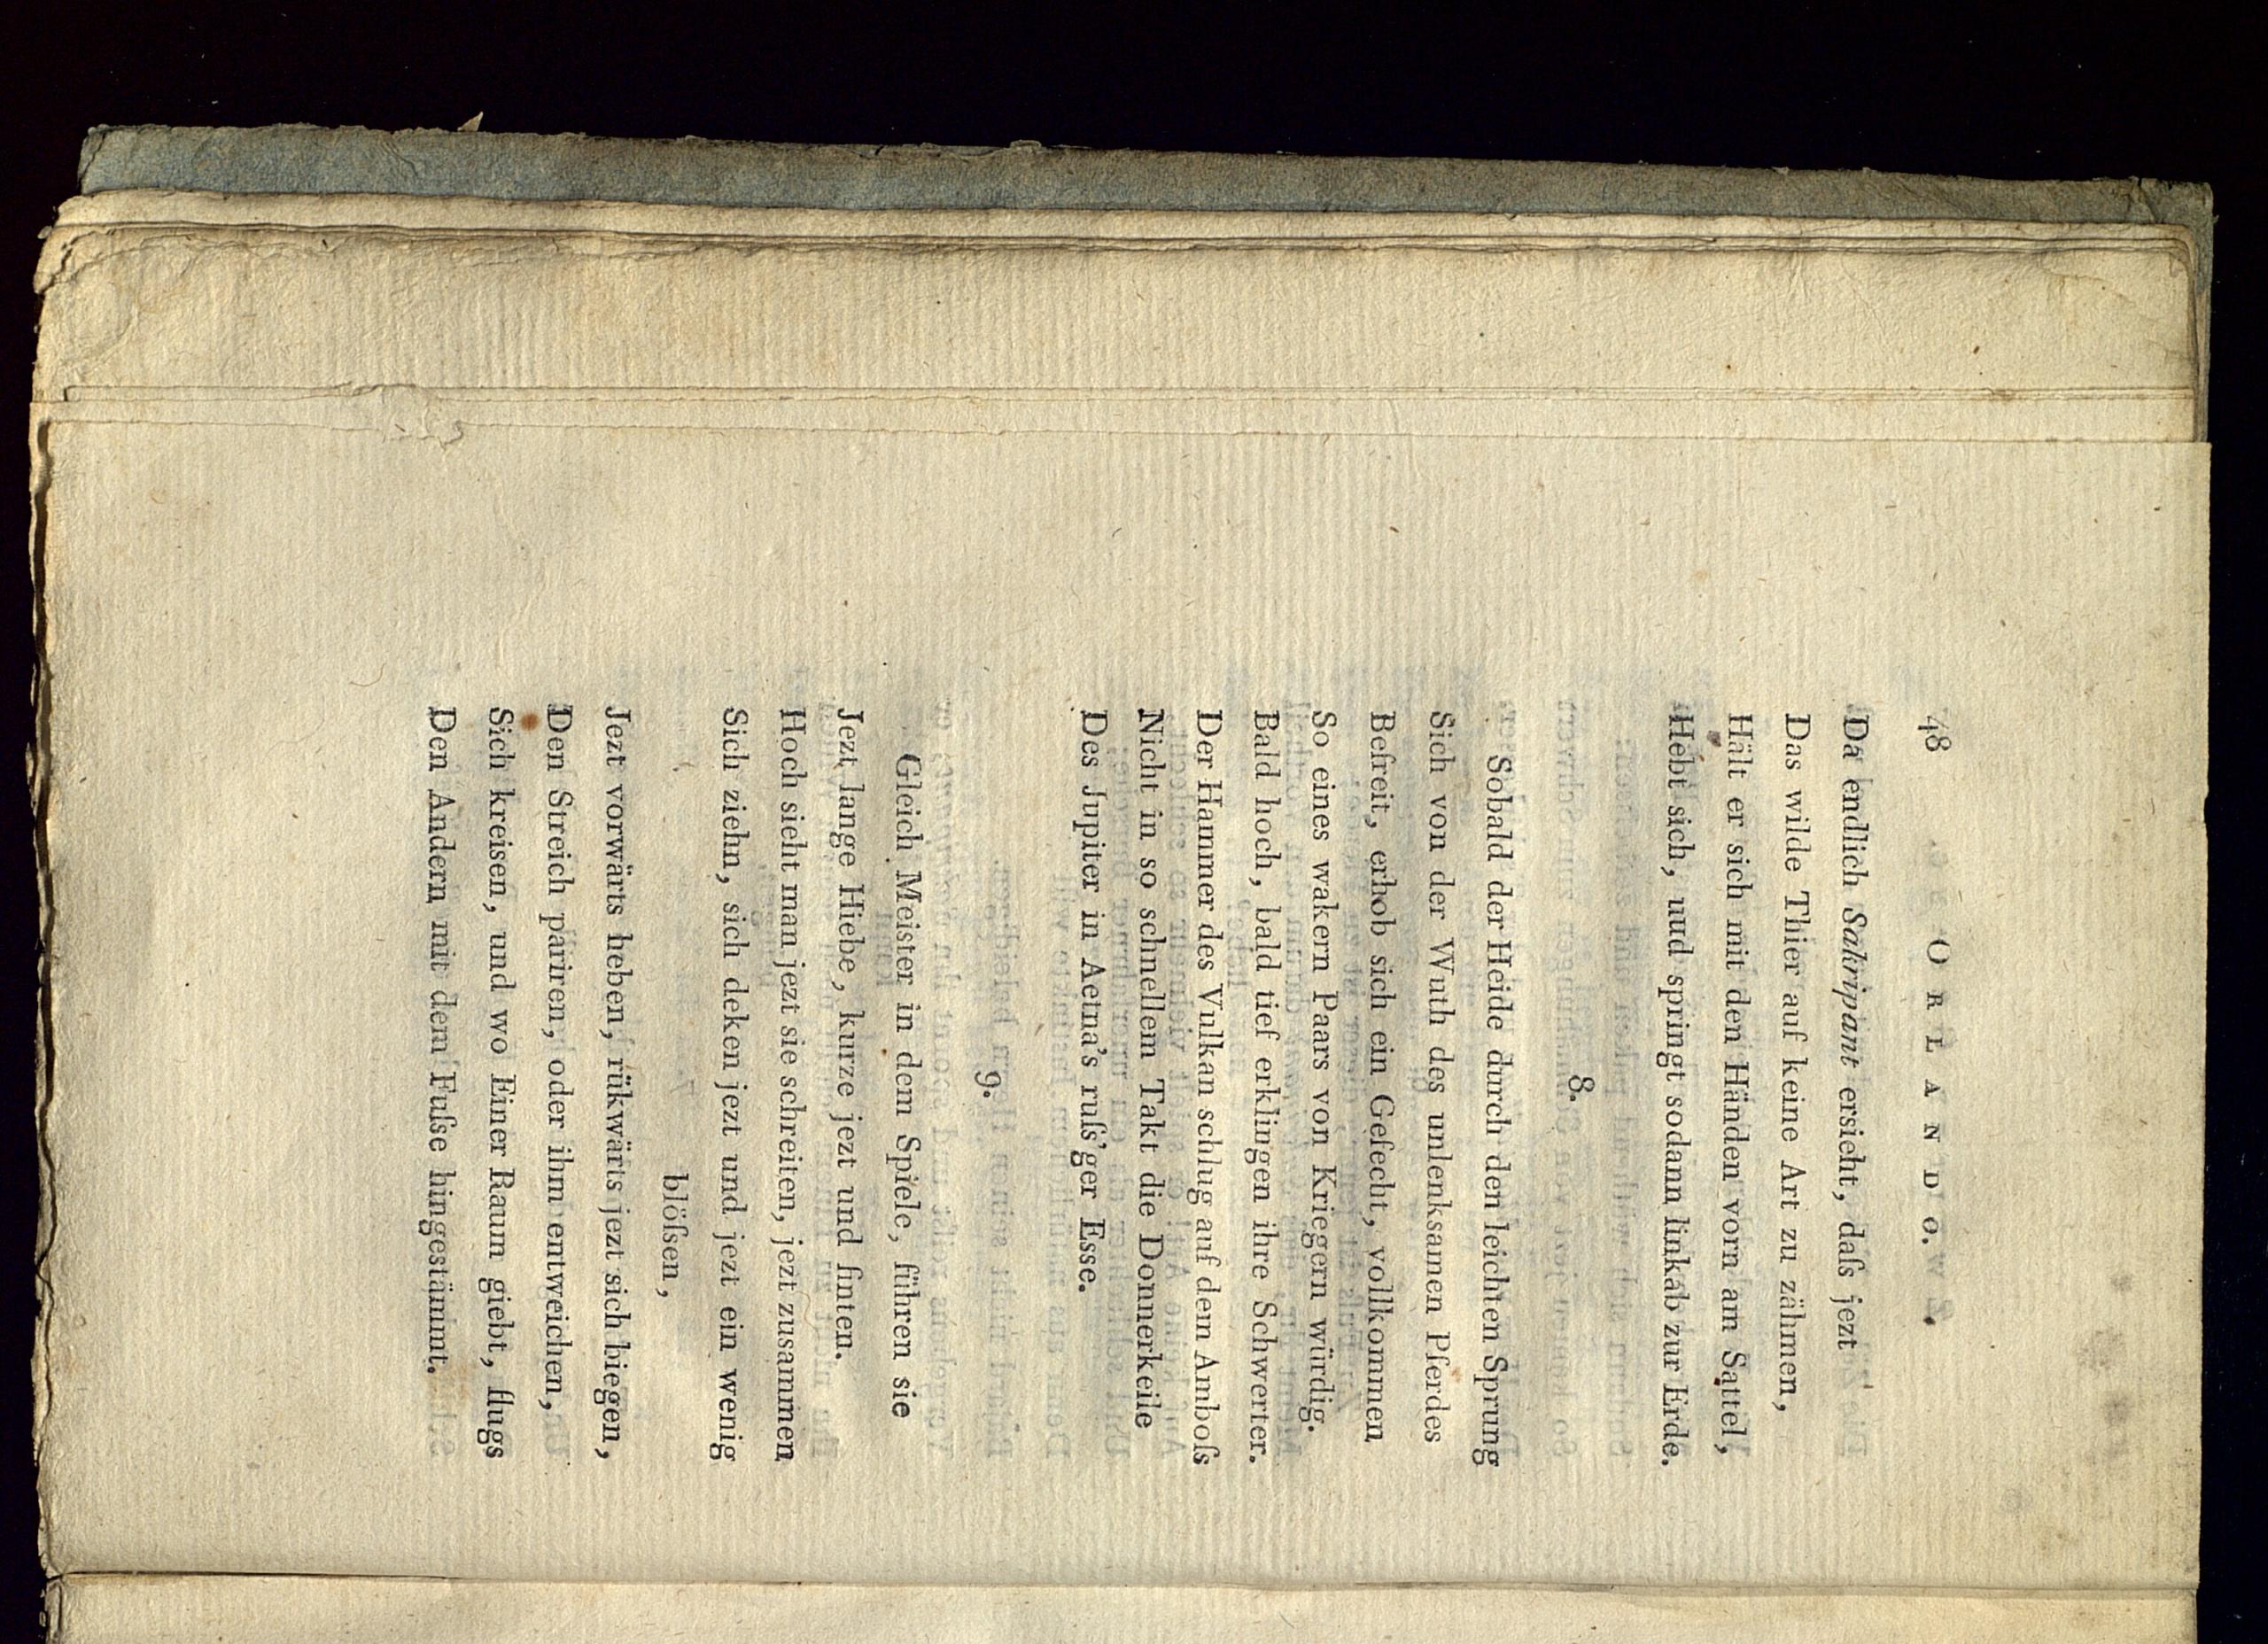 48 ORLANDO.
Da endlich Sakripant ersieht, daſs jezt
Das wilde Thier auf keine Art zu zähmen,
Hält er sich mit den Händen vorn am Sattel,
Hebt sich, uud springt sodann linkab zur Erde.
8.
Sobald der Heide durch den leichten Sprung
Sich von der Wuth des unlenksamen Pferdes
Befreit, erhob sich ein Gefecht, vollkommen
So eines wakern Paars von Kriegern würdig.
Bald hoch, bald tief erklingen ihre Schwerter.
Der Hammer des Vulkan schlug auf dem Amboſs
Nicht in so schnellem Takt die Donnerkeile
Des Jupiter in Aetna's ruſs'ger Esse.
9.
Gleich Meister in dem Spiele, führen sie
Jezt lange Hiebe, kurze jezt und finten.
Hoch sieht man jezt sie schreiten, jezt zusammen
Sich ziehn, sich deken jezt und jezt ein wenig
blöſsen,
Jezt vorwärts heben, rükwärts jezt sich biegen,
Den Streich pariren, oder ihm entweichen,
Sich kreisen, und wo Einer Raum giebt, flugs
Den Andern mit dem Fuſse hingestämmt.